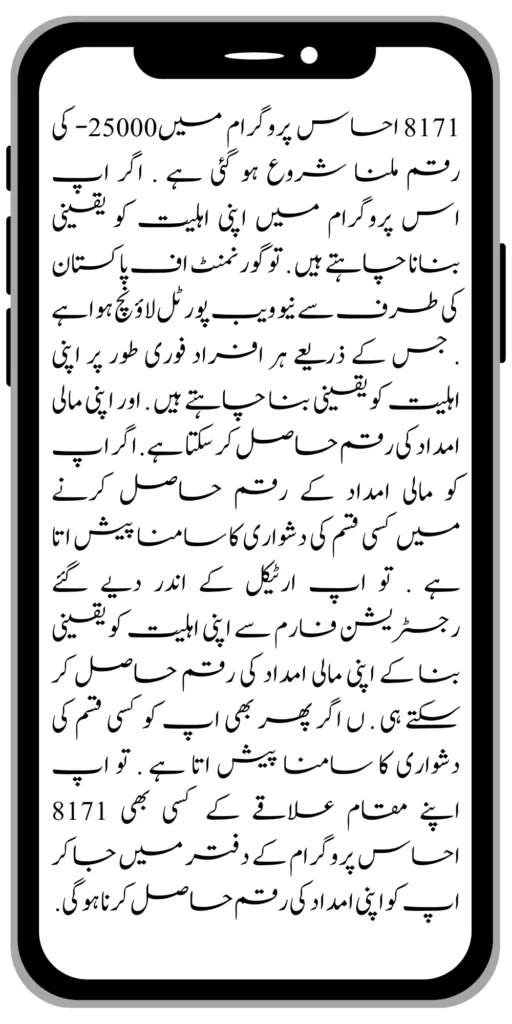 8171 احساس پروگرام میں25000- کی
رقم ملنا شروع ہو گئی ہے . اگر اپ
اس پروگرام میں اپنی اہلیت کو یقینی
بنانا چاہتے ہیں . تو گورنمنٹ اف پاکستان
کی طرف سے نیو ویب پورٹل لاؤنچ ہوا ہے
. جس کے ذریعے ہر افراد فوری طور پر اپنی
اہلیت کو یقینی بنا چاہتے ہیں . اور اپنی مالی
امداد کی رقم حاصل کر سکتا ہے . اگر اپ
کو مالی امداد کے رقم حاصل کرنے
میں کسی قسم کی دشواری کا سامنا پیش اتا
ہے . تو اپ ارٹیکل کے اندر دیے گئے
رجسٹریشن فارم سے اپنی اہلیت کو یقینی
بنا کے اپنی مالی امداد کی رقم حاصل کر
سکتے ہی . ں اگر پھر بھی اپ کو کسی قسم کی
دشواری کا سامنا پیش اتا ہے . تو اپ
اپنے مقام علاقے کے کسی بھی 8171
احساس پروگرام کے دفتر میں جا کر
اپ کو اپنی امداد کی رقم حاصل کرنا ہو گی .